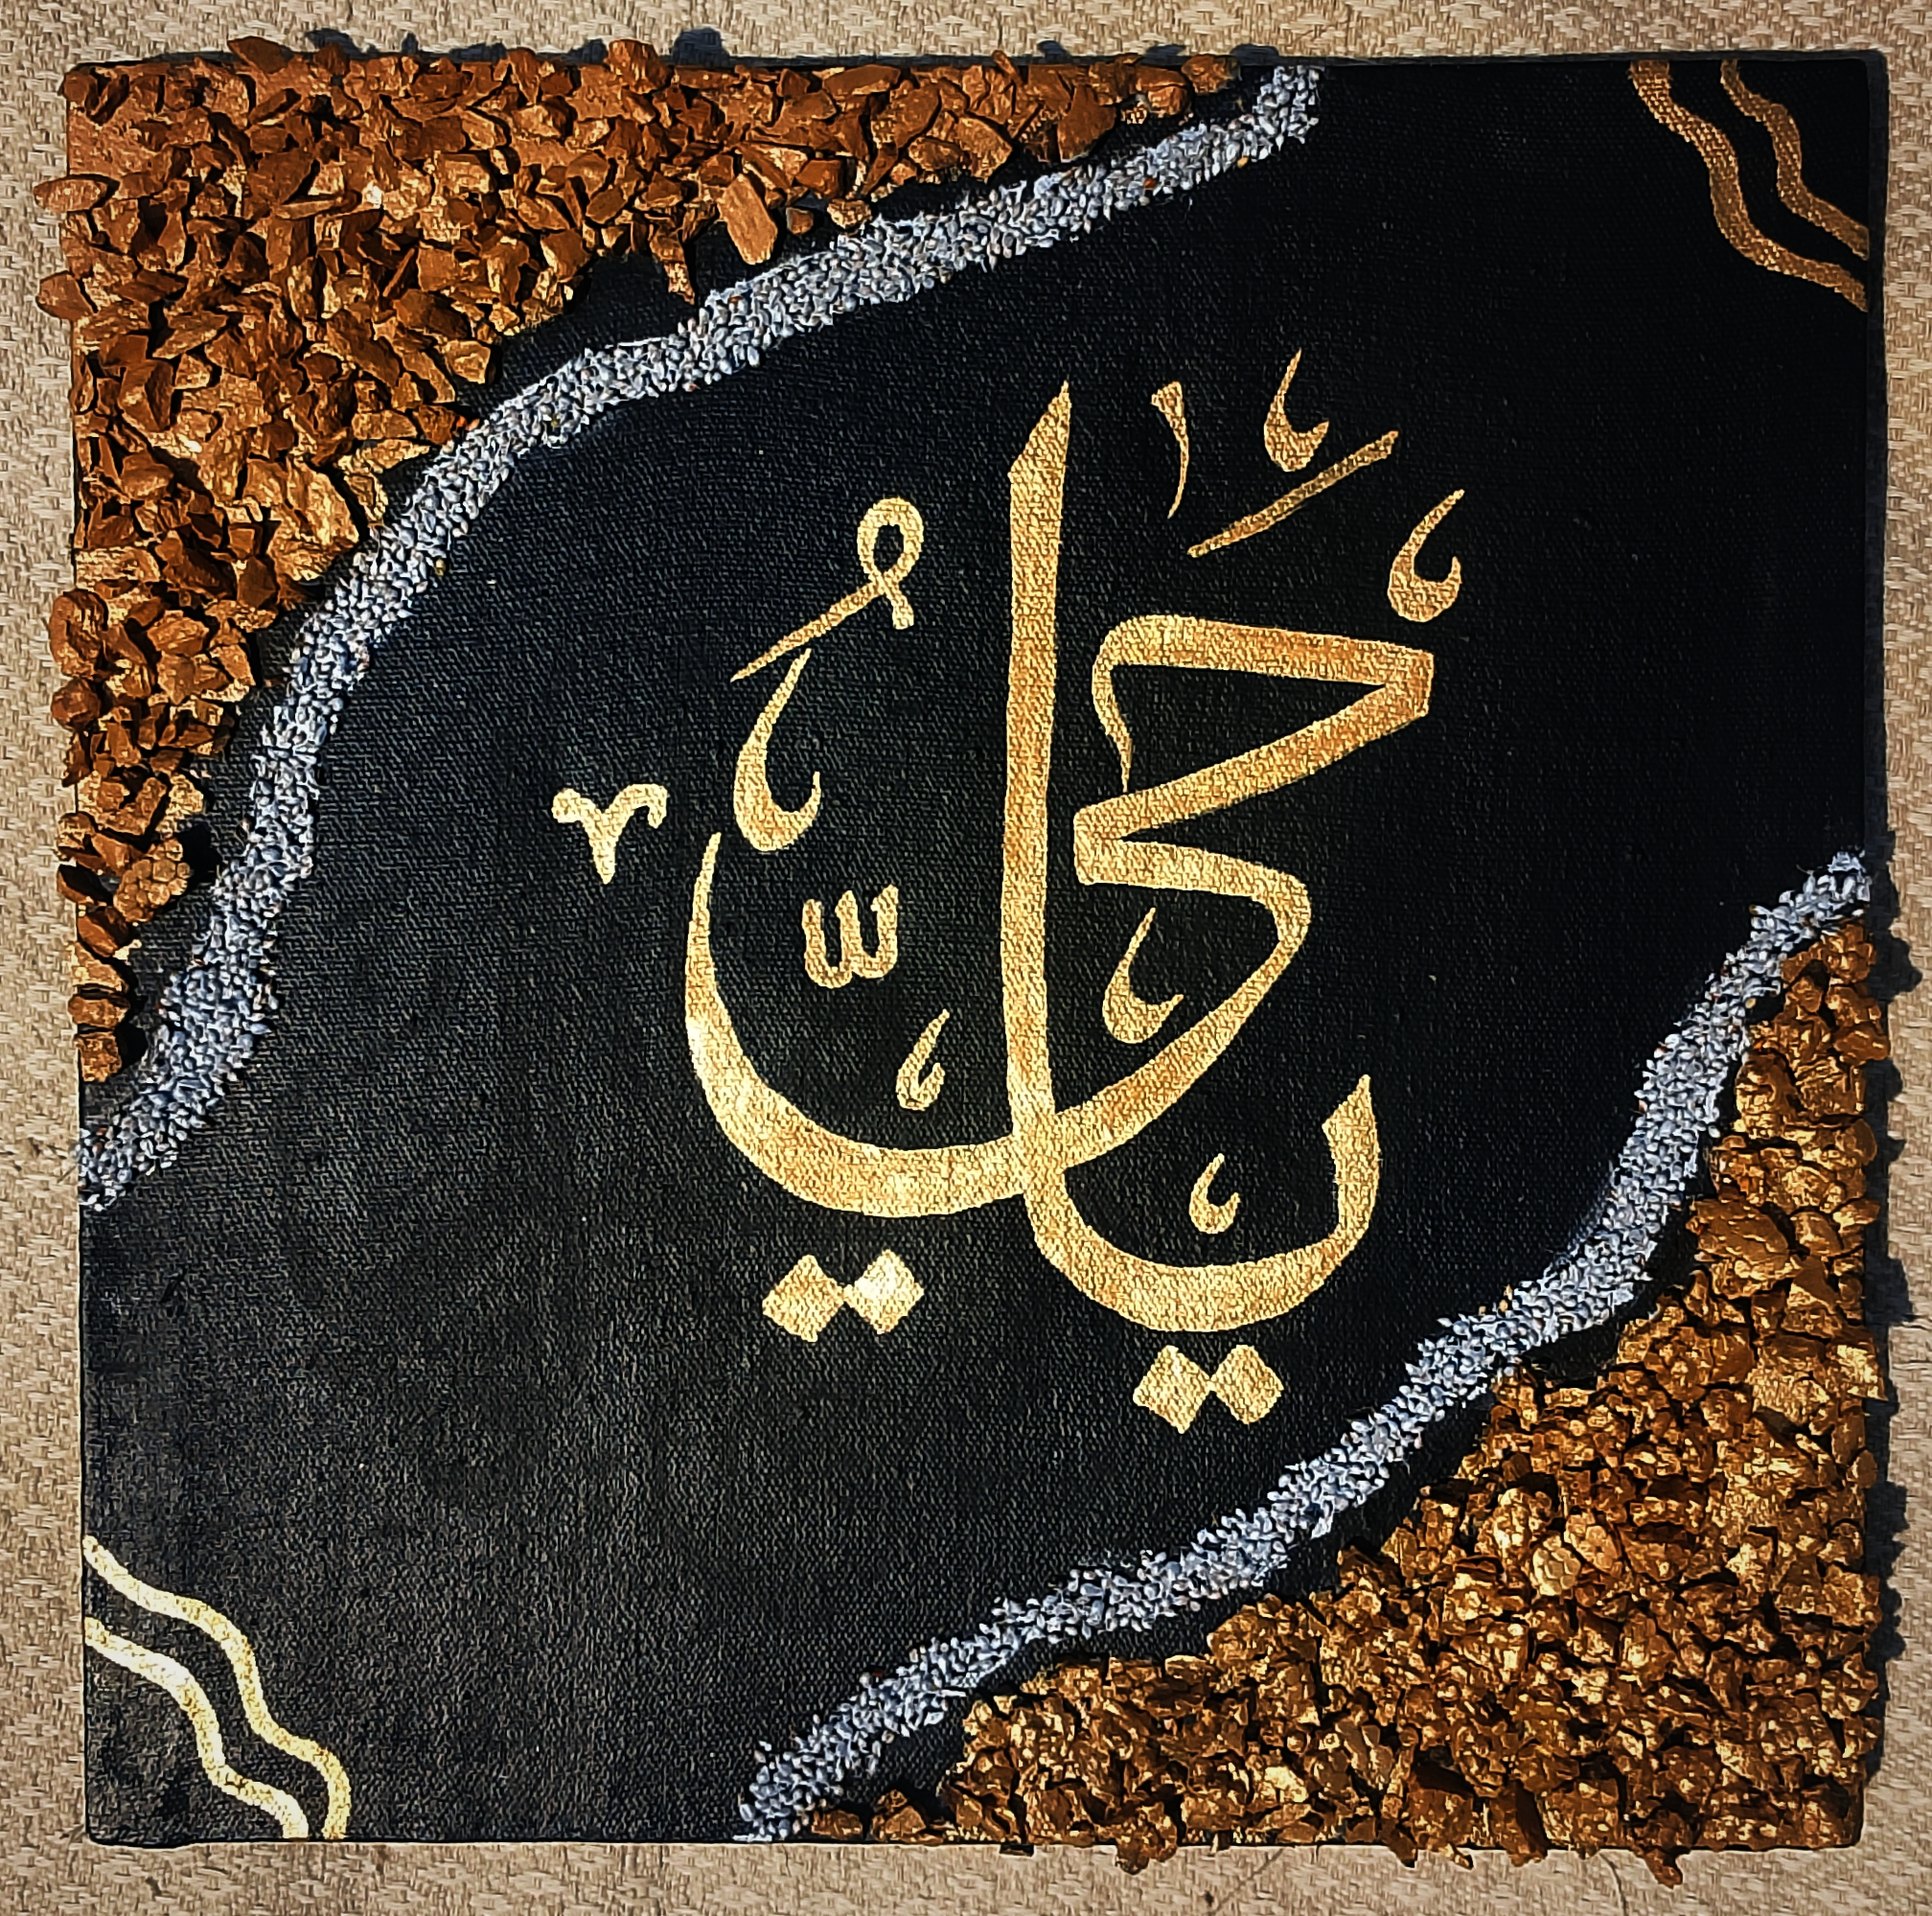 يا حي